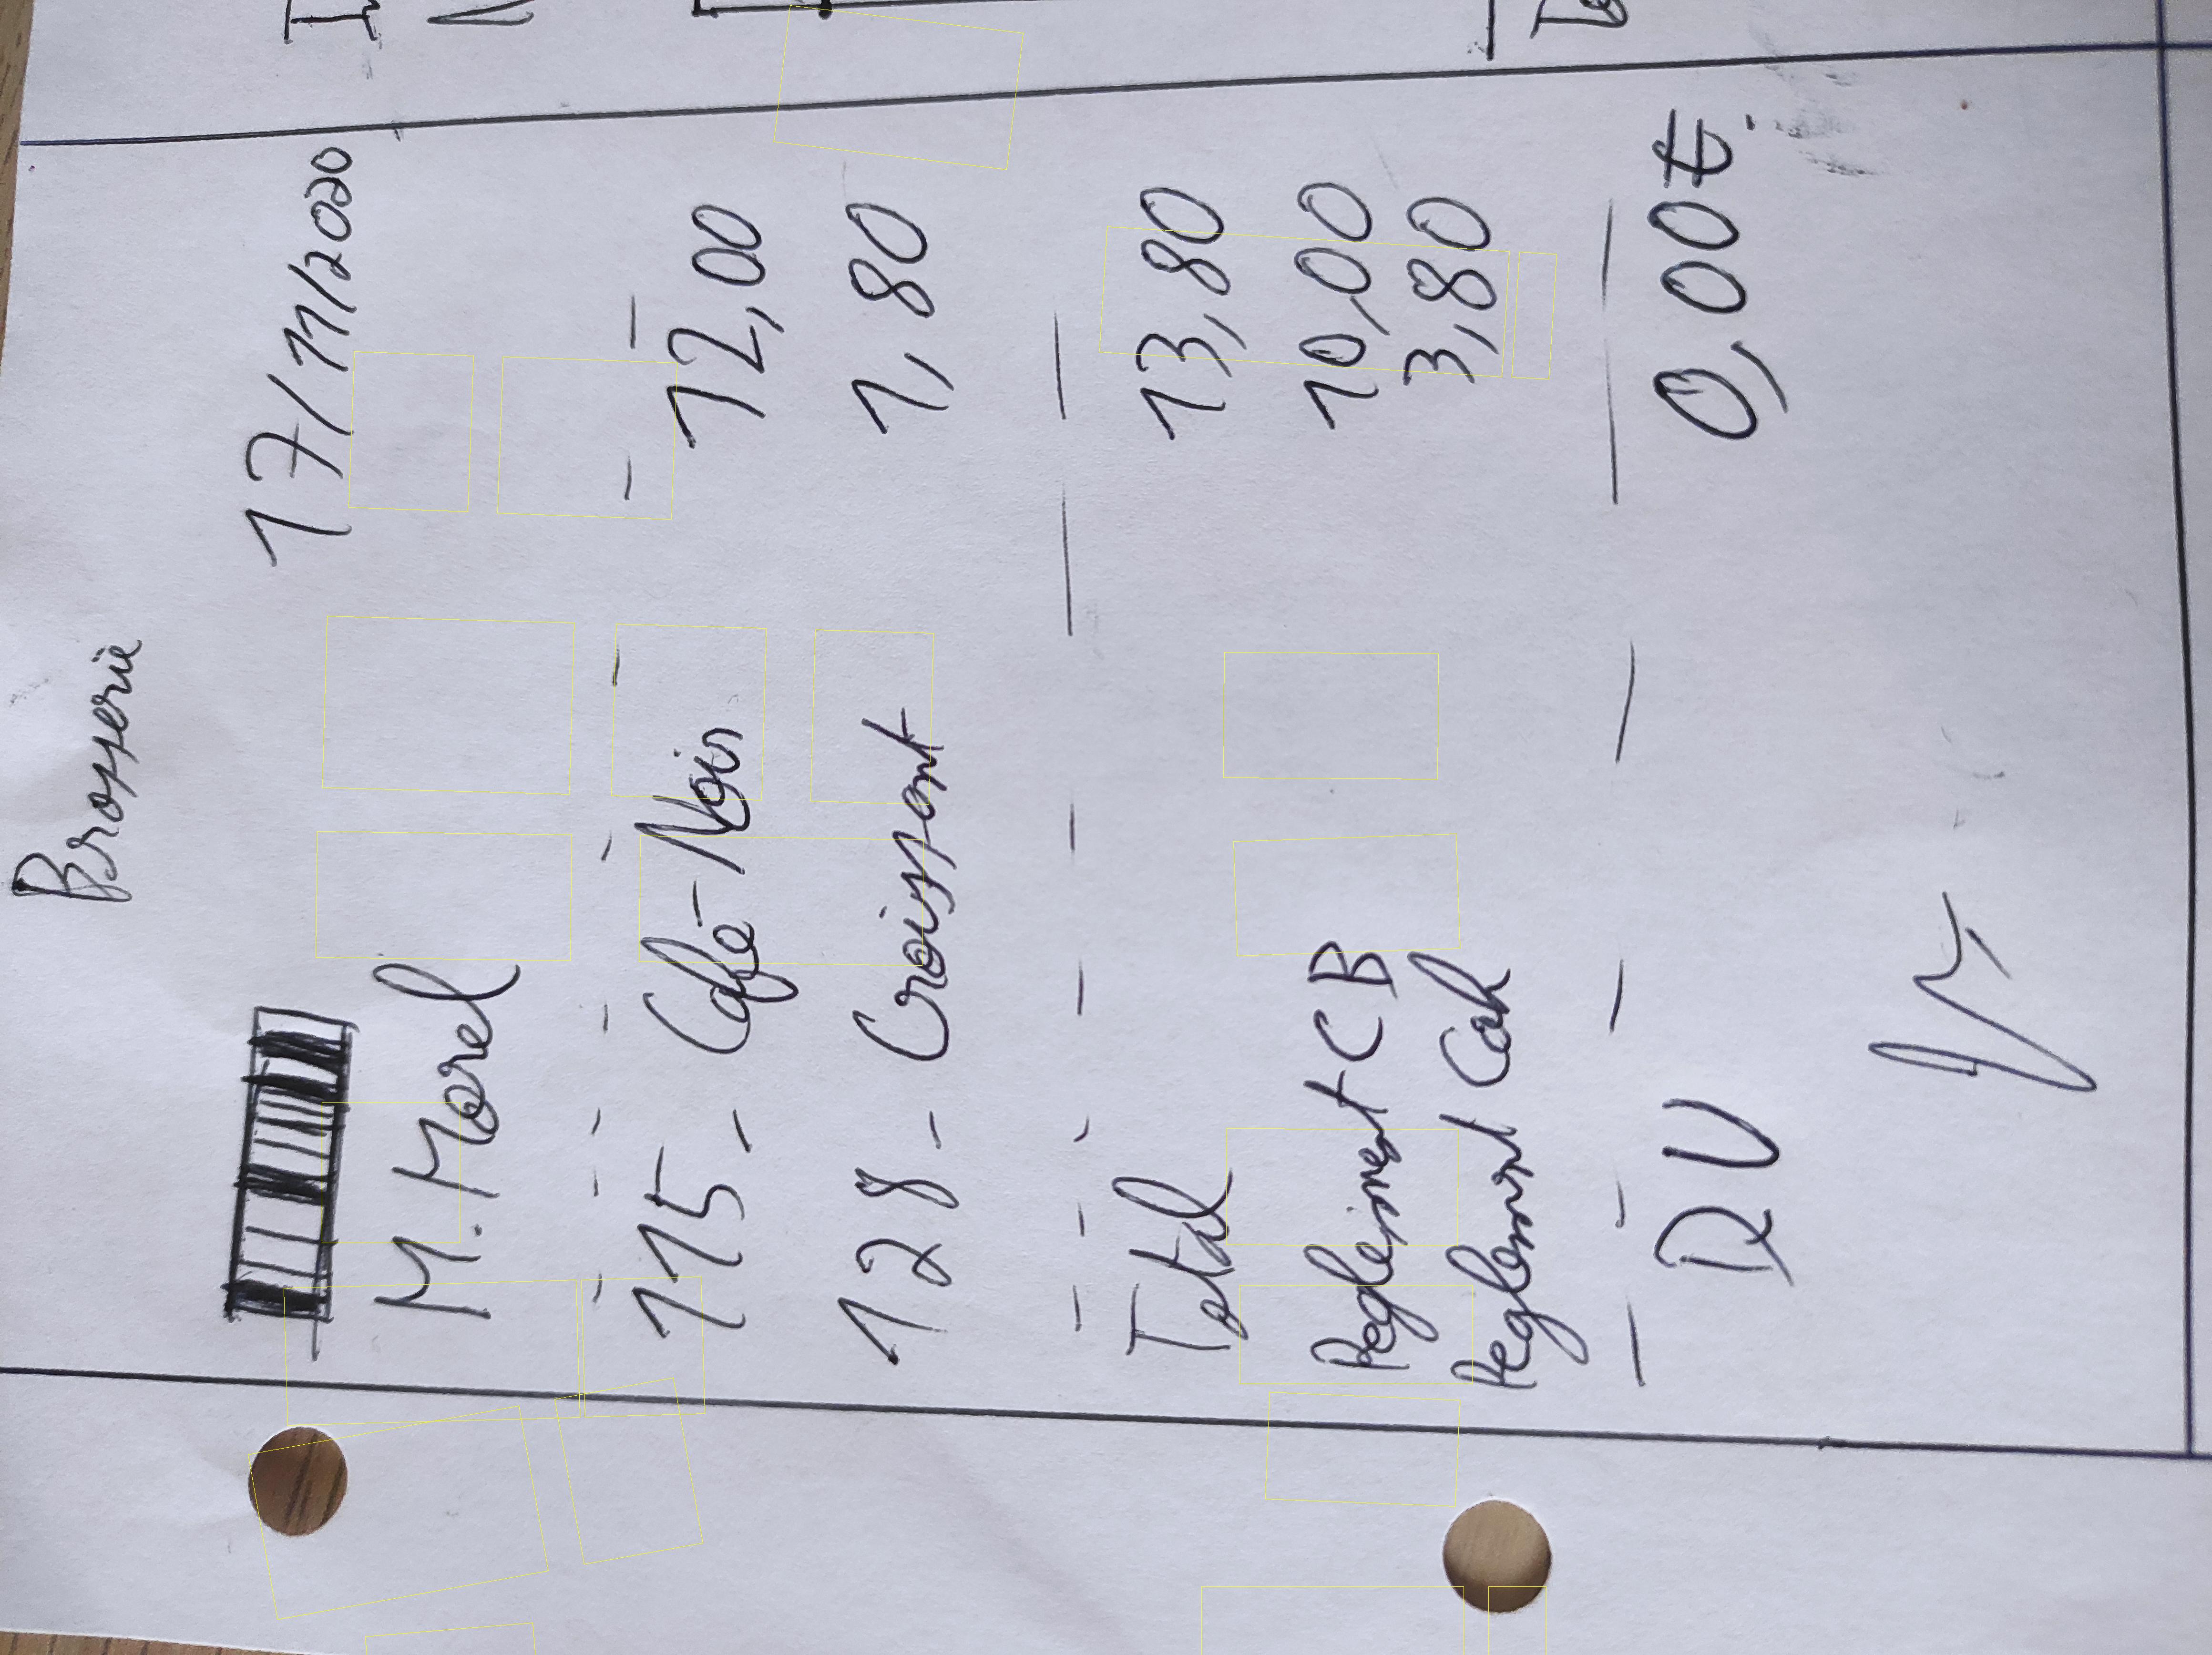 Brasserie
17/11/2020
M. Morel
115 - Café-Noir 12,00
128 - Croissant 1,80
Total 13,80
Reglement CB 10,00
Reglement Cash 3,80
DU 0,00€